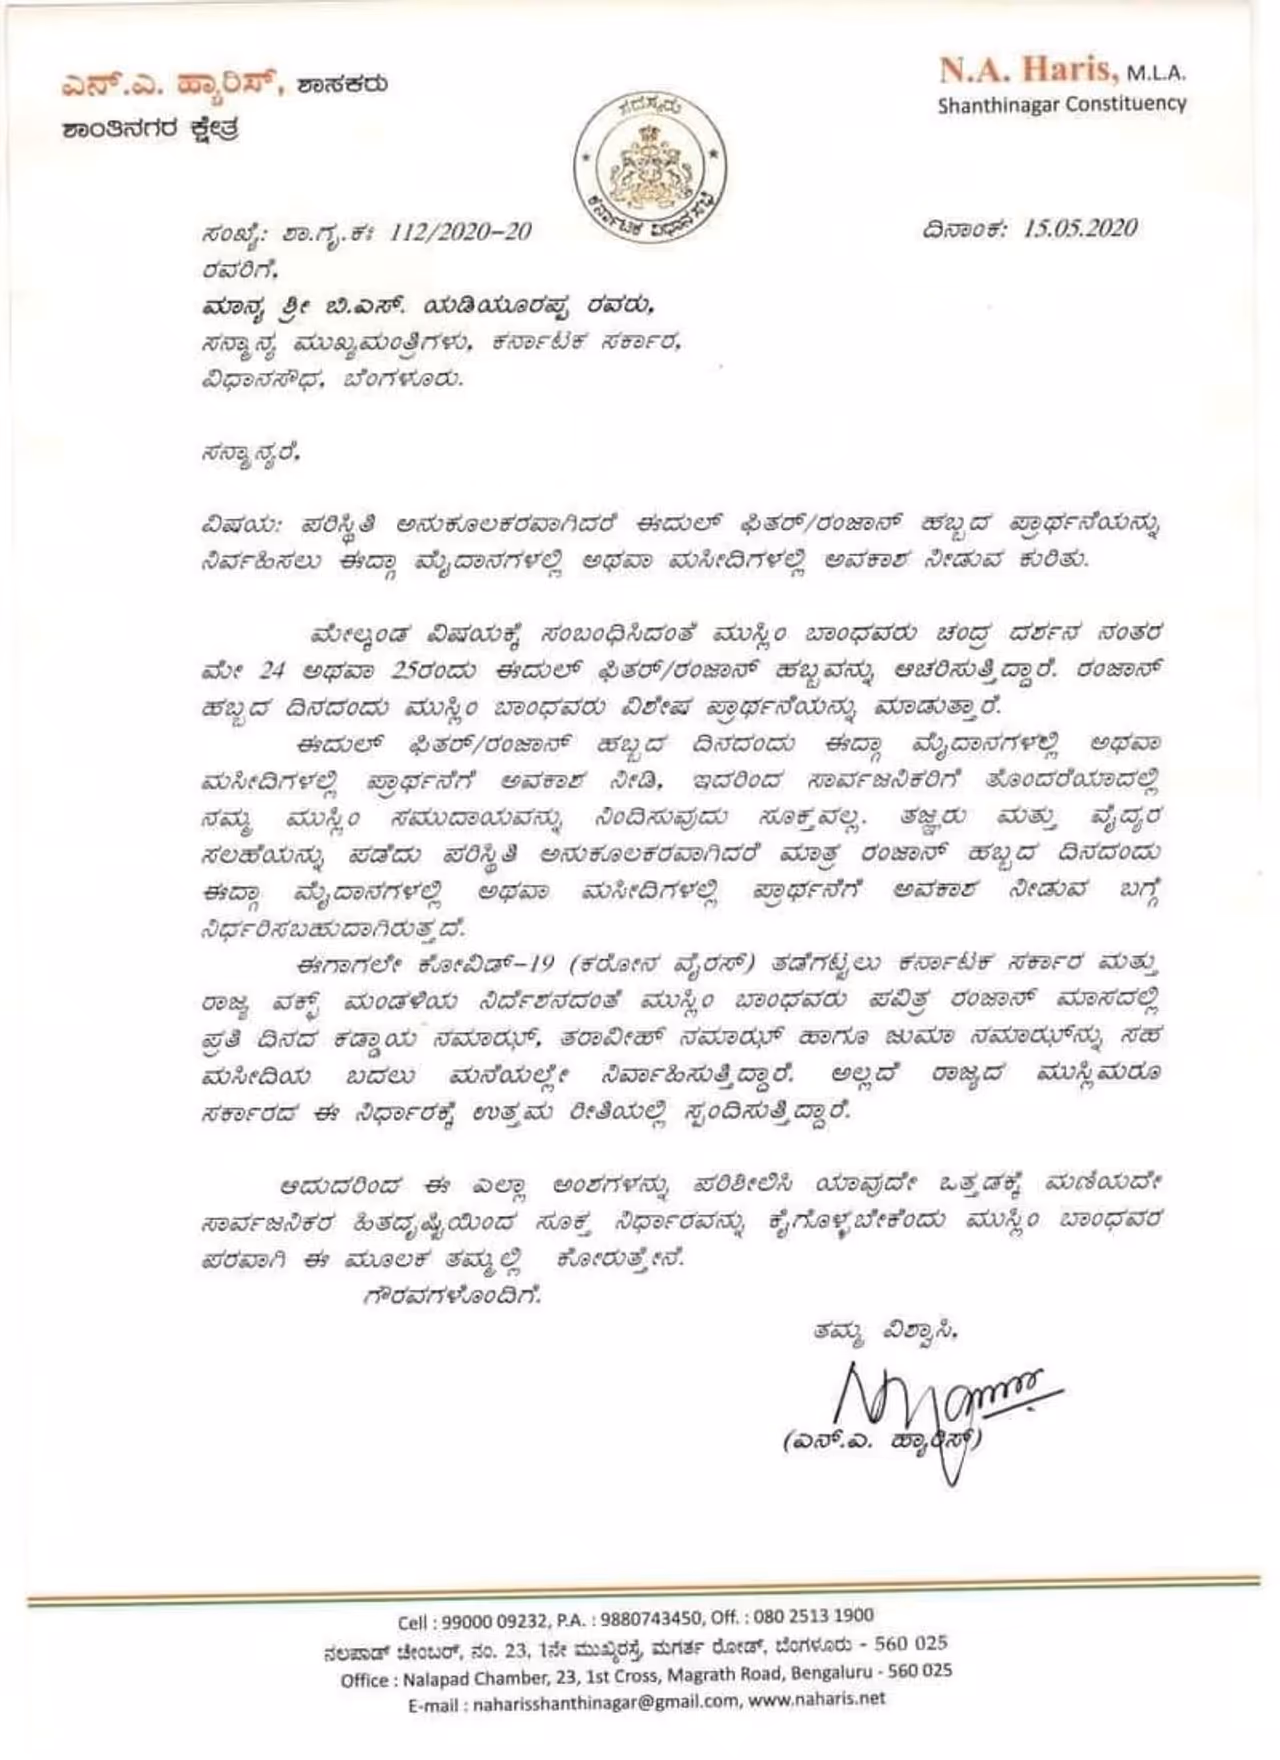 ಎನ್.ಎ. ಹ್ಯಾರಿಸ್, ಶಾಸಕರು
ಶಾಂತಿನಗರ ಕ್ಷೇತ್ರ
N.A. Haris, M.L.A.
Shanthinagar Constituency
ಸದಸ್ಯರು
ಕರ್ನಾಟಕ ವಿಧಾನಸಭೆ
ಸಂಖ್ಯೆ: ಶಾ.ಗೃ.ಕಃ 112/2020-20
ದಿನಾಂಕ: 15.05.2020
ರವರಿಗೆ,
ಮಾನ್ಯ ಶ್ರೀ ಬಿ.ಎಸ್. ಯಡಿಯೂರಪ್ಪ ರವರು,
ಸನ್ಮಾನ್ಯ ಮುಖ್ಯಮಂತ್ರಿಗಳು, ಕರ್ನಾಟಕ ಸರ್ಕಾರ,
ವಿಧಾನಸೌಧ, ಬೆಂಗಳೂರು.
ಸನ್ಮಾನ್ಯರೆ,
ವಿಷಯ: ಪರಿಸ್ಥಿತಿ ಅನುಕೂಲಕರವಾಗಿದರೆ ಈದುಲ್ ಫಿತರ್/ರಂಜಾನ್ ಹಬ್ಬದ ಪ್ರಾರ್ಥನೆಯನ್ನು
ನಿರ್ವಹಿಸಲು ಈದ್ಗಾ ಮೈದಾನಗಳಲ್ಲಿ ಅಥವಾ ಮಸೀದಿಗಳಲ್ಲಿ ಅವಕಾಶ ನೀಡುವ ಕುರಿತು.
ಮೇಲ್ಕಂಡ ವಿಷಯಕ್ಕೆ ಸಂಬಂಧಿಸಿದಂತೆ ಮುಸ್ಲಿಂ ಬಾಂಧವರು ಚಂದ್ರ ದರ್ಶನ ನಂತರ
ಮೇ 24 ಅಥವಾ 25ರಂದು ಈದುಲ್ ಫಿತರ್/ರಂಜಾನ್ ಹಬ್ಬವನ್ನು ಆಚರಿಸುತ್ತಿದ್ದಾರೆ. ರಂಜಾನ್
ಹಬ್ಬದ ದಿನದಂದು ಮುಸ್ಲಿಂ ಬಾಂಧವರು ವಿಶೇಷ ಪ್ರಾರ್ಥನೆಯನ್ನು ಮಾಡುತ್ತಾರೆ.
ಈದುಲ್ ಫಿತರ್/ರಂಜಾನ್ ಹಬ್ಬದ ದಿನದಂದು ಈದ್ಗಾ ಮೈದಾನಗಳಲ್ಲಿ ಅಥವಾ
ಮಸೀದಿಗಳಲ್ಲಿ ಪ್ರಾರ್ಥನೆಗೆ ಅವಕಾಶ ನೀಡಿ, ಇದರಿಂದ ಸಾರ್ವಜನಿಕರಿಗೆ ತೊಂದರೆಯಾದಲ್ಲಿ
ನಮ್ಮ ಮುಸ್ಲಿಂ ಸಮುದಾಯವನ್ನು ನಿಂದಿಸುವುದು ಸೂಕ್ತವಲ್ಲ. ತಜ್ಞರು ಮತ್ತು ವೈದ್ಯರ
ಸಲಹೆಯನ್ನು ಪಡೆದು ಪರಿಸ್ಥಿತಿ ಅನುಕೂಲಕರವಾಗಿದರೆ ಮಾತ್ರ ರಂಜಾನ್ ಹಬ್ಬದ ದಿನದಂದು
ಈದ್ಗಾ ಮೈದಾನಗಳಲ್ಲಿ ಅಥವಾ ಮಸೀದಿಗಳಲ್ಲಿ ಪ್ರಾರ್ಥನೆಗೆ ಅವಕಾಶ ನೀಡುವ ಬಗ್ಗೆ
ನಿರ್ಧರಿಸಬಹುದಾಗಿರುತ್ತದೆ.
ಈಗಾಗಲೇ ಕೋವಿಡ್-19 (ಕರೋನ ವೈರಸ್) ತಡೆಗಟ್ಟಲು ಕರ್ನಾಟಕ ಸರ್ಕಾರ ಮತ್ತು
ರಾಜ್ಯ ವಕ್ಫ್ ಮಂಡಳಿಯ ನಿರ್ದೆಶನದಂತೆ ಮುಸ್ಲಿಂ ಬಾಂಧವರು ಪವಿತ್ರ ರಂಜಾನ್ ಮಾಸದಲ್ಲಿ
ಪ್ರತಿ ದಿನದ ಕಡ್ಡಾಯ ನಮಾಝ್, ತರಾವೀಹ್ ನಮಾಝ್ ಹಾಗೂ ಜುಮಾ ನಮಾಝ್‌ನ್ನು ಸಹ
ಮಸೀದಿಯ ಬದಲು ಮನೆಯಲ್ಲೇ ನಿರ್ವಾಹಿಸುತ್ತಿದ್ದಾರೆ. ಅಲ್ಲದೆ ರಾಜ್ಯದ ಮುಸ್ಲಿಮರೂ
ಸರ್ಕಾರದ ಈ ನಿರ್ಧಾರಕ್ಕೆ ಉತ್ತಮ ರೀತಿಯಲ್ಲಿ ಸ್ಪಂದಿಸುತ್ತಿದ್ದಾರೆ.
ಆದುದರಿಂದ ಈ ಎಲ್ಲಾ ಅಂಶಗಳನ್ನು ಪರಿಶೀಲಿಸಿ ಯಾವುದೇ ಒತ್ತಡಕ್ಕೆ ಮಣಿಯದೇ
ಸಾರ್ವಜನಿಕರ ಹಿತದೃಷ್ಟಿಯಿಂದ ಸೂಕ್ತ ನಿರ್ಧಾರವನ್ನು ಕೈಗೊಳ್ಳಬೇಕೆಂದು ಮುಸ್ಲಿಂ ಬಾಂಧವರ
ಪರವಾಗಿ ಈ ಮೂಲಕ ತಮ್ಮಲ್ಲಿ ಕೋರುತ್ತೇನೆ.
ಗೌರವಗಳೊಂದಿಗೆ.
ತಮ್ಮ ವಿಶ್ವಾಸಿ,
(ಎನ್.ಎ. ಹ್ಯಾರಿಸ್)
Cell : 99000 09232, P.A. : 9880743450, Off. : 080 2513 1900
ನಲಪಾಡ್ ಚೇಂಬರ್, ನಂ. 23, 1ನೇ ಮುಖ್ಯರಸ್ತೆ, ಮಗರ್ತ ರೋಡ್, ಬೆಂಗಳೂರು - 560 025
Office : Nalapad Chamber, 23, 1st Cross, Magrath Road, Bengaluru - 560 025
E-mail : naharisshanthinagar@gmail.com, www.naharis.net